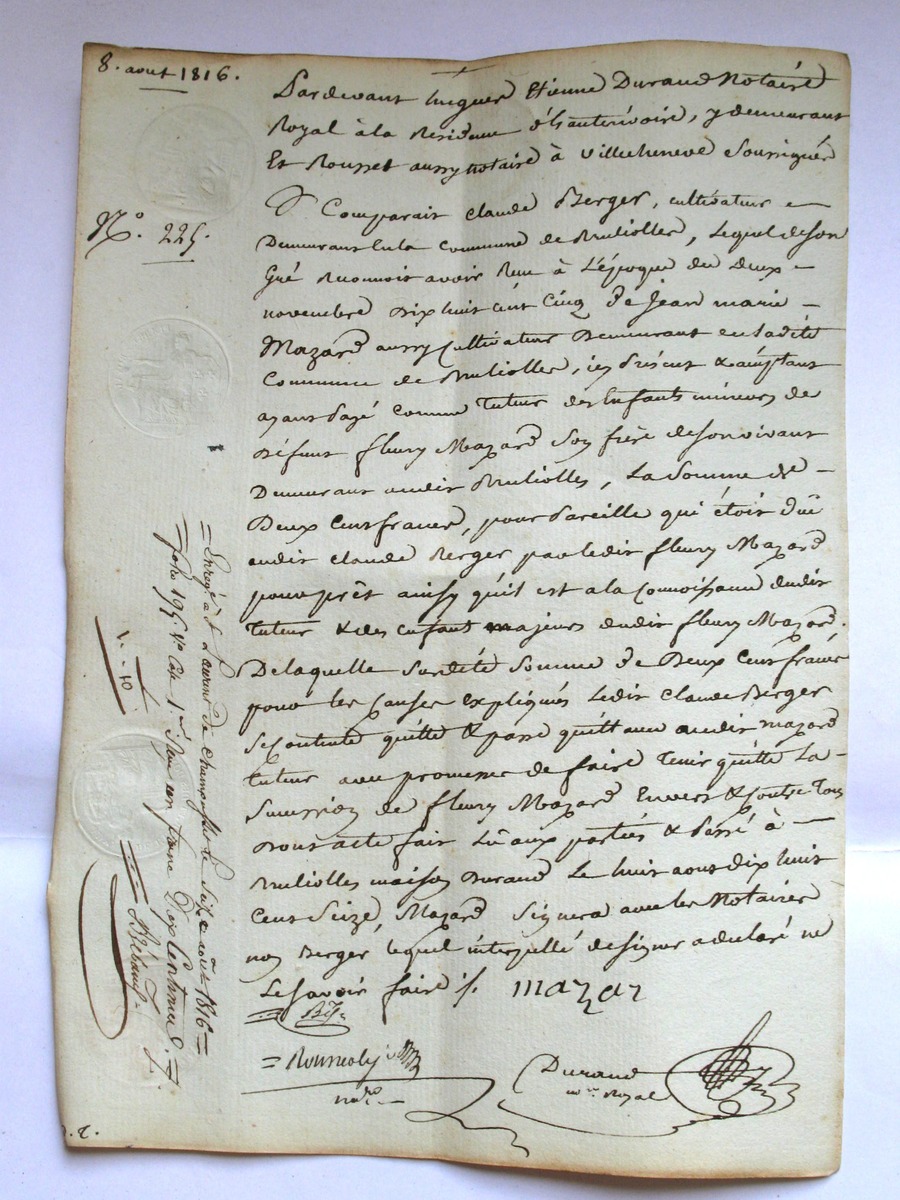 8. aout 1816.
Pardevant hugues Etienne Durand Notaire
Royal à la Residence d'hauterivoire, y demeurant
Et Rousset aussy notaire à villecheneve Soussignés
Comparait claude Berger, cultivateur
N.o 225.
Demeurant en la commune de Brulliolles, lequel de son
Gré reconnoit avoir Reçu à L'époque du deux
novembre dix huit cent cinq de jean marie
Mazard aussy cultivateur Demeurant en Ladite
Commune de Brulliolles, icy présent & acceptant
ayant payé comme tuteur des Enfants mineurs de
défunt fleury Mazard Son frère de son vivant
Demeurant audit Brulliolles, La Somme de
Deux Cent francs, pour pareille qui étoit dûe
audit claude Berger par ledit fleury Mazard
pour prêt ainsy qu'il est a la connoissance dudit
tuteur & des enfants majeurs dudit fleury Mazard.
De laquelle susdite Somme de Deux Cent francs
pour les causes expliqués Ledit Claude Berger
Se contente quitte & passe quittance audit mazard
tuteur avec promesse de faire tenir quitte La
Succession de fleury Mazard Envers & contre tous
dont acte fait Lû aux parties & passé à
Brulliolles maison Durand Le huit aout dix huit
Cent Seize, Mazard Signera avec les Notaires
non Berger lequel interpellé de signer a déclaré ne
Le savoir faire /.
mazar
Rousset
no.re
Durand
no.re Royal
Enregé à St Laurent de Chamousset le Seize août 1816
folio 195 Vo Case 1re Reçu un franc Dix Centimes.
1.. 10